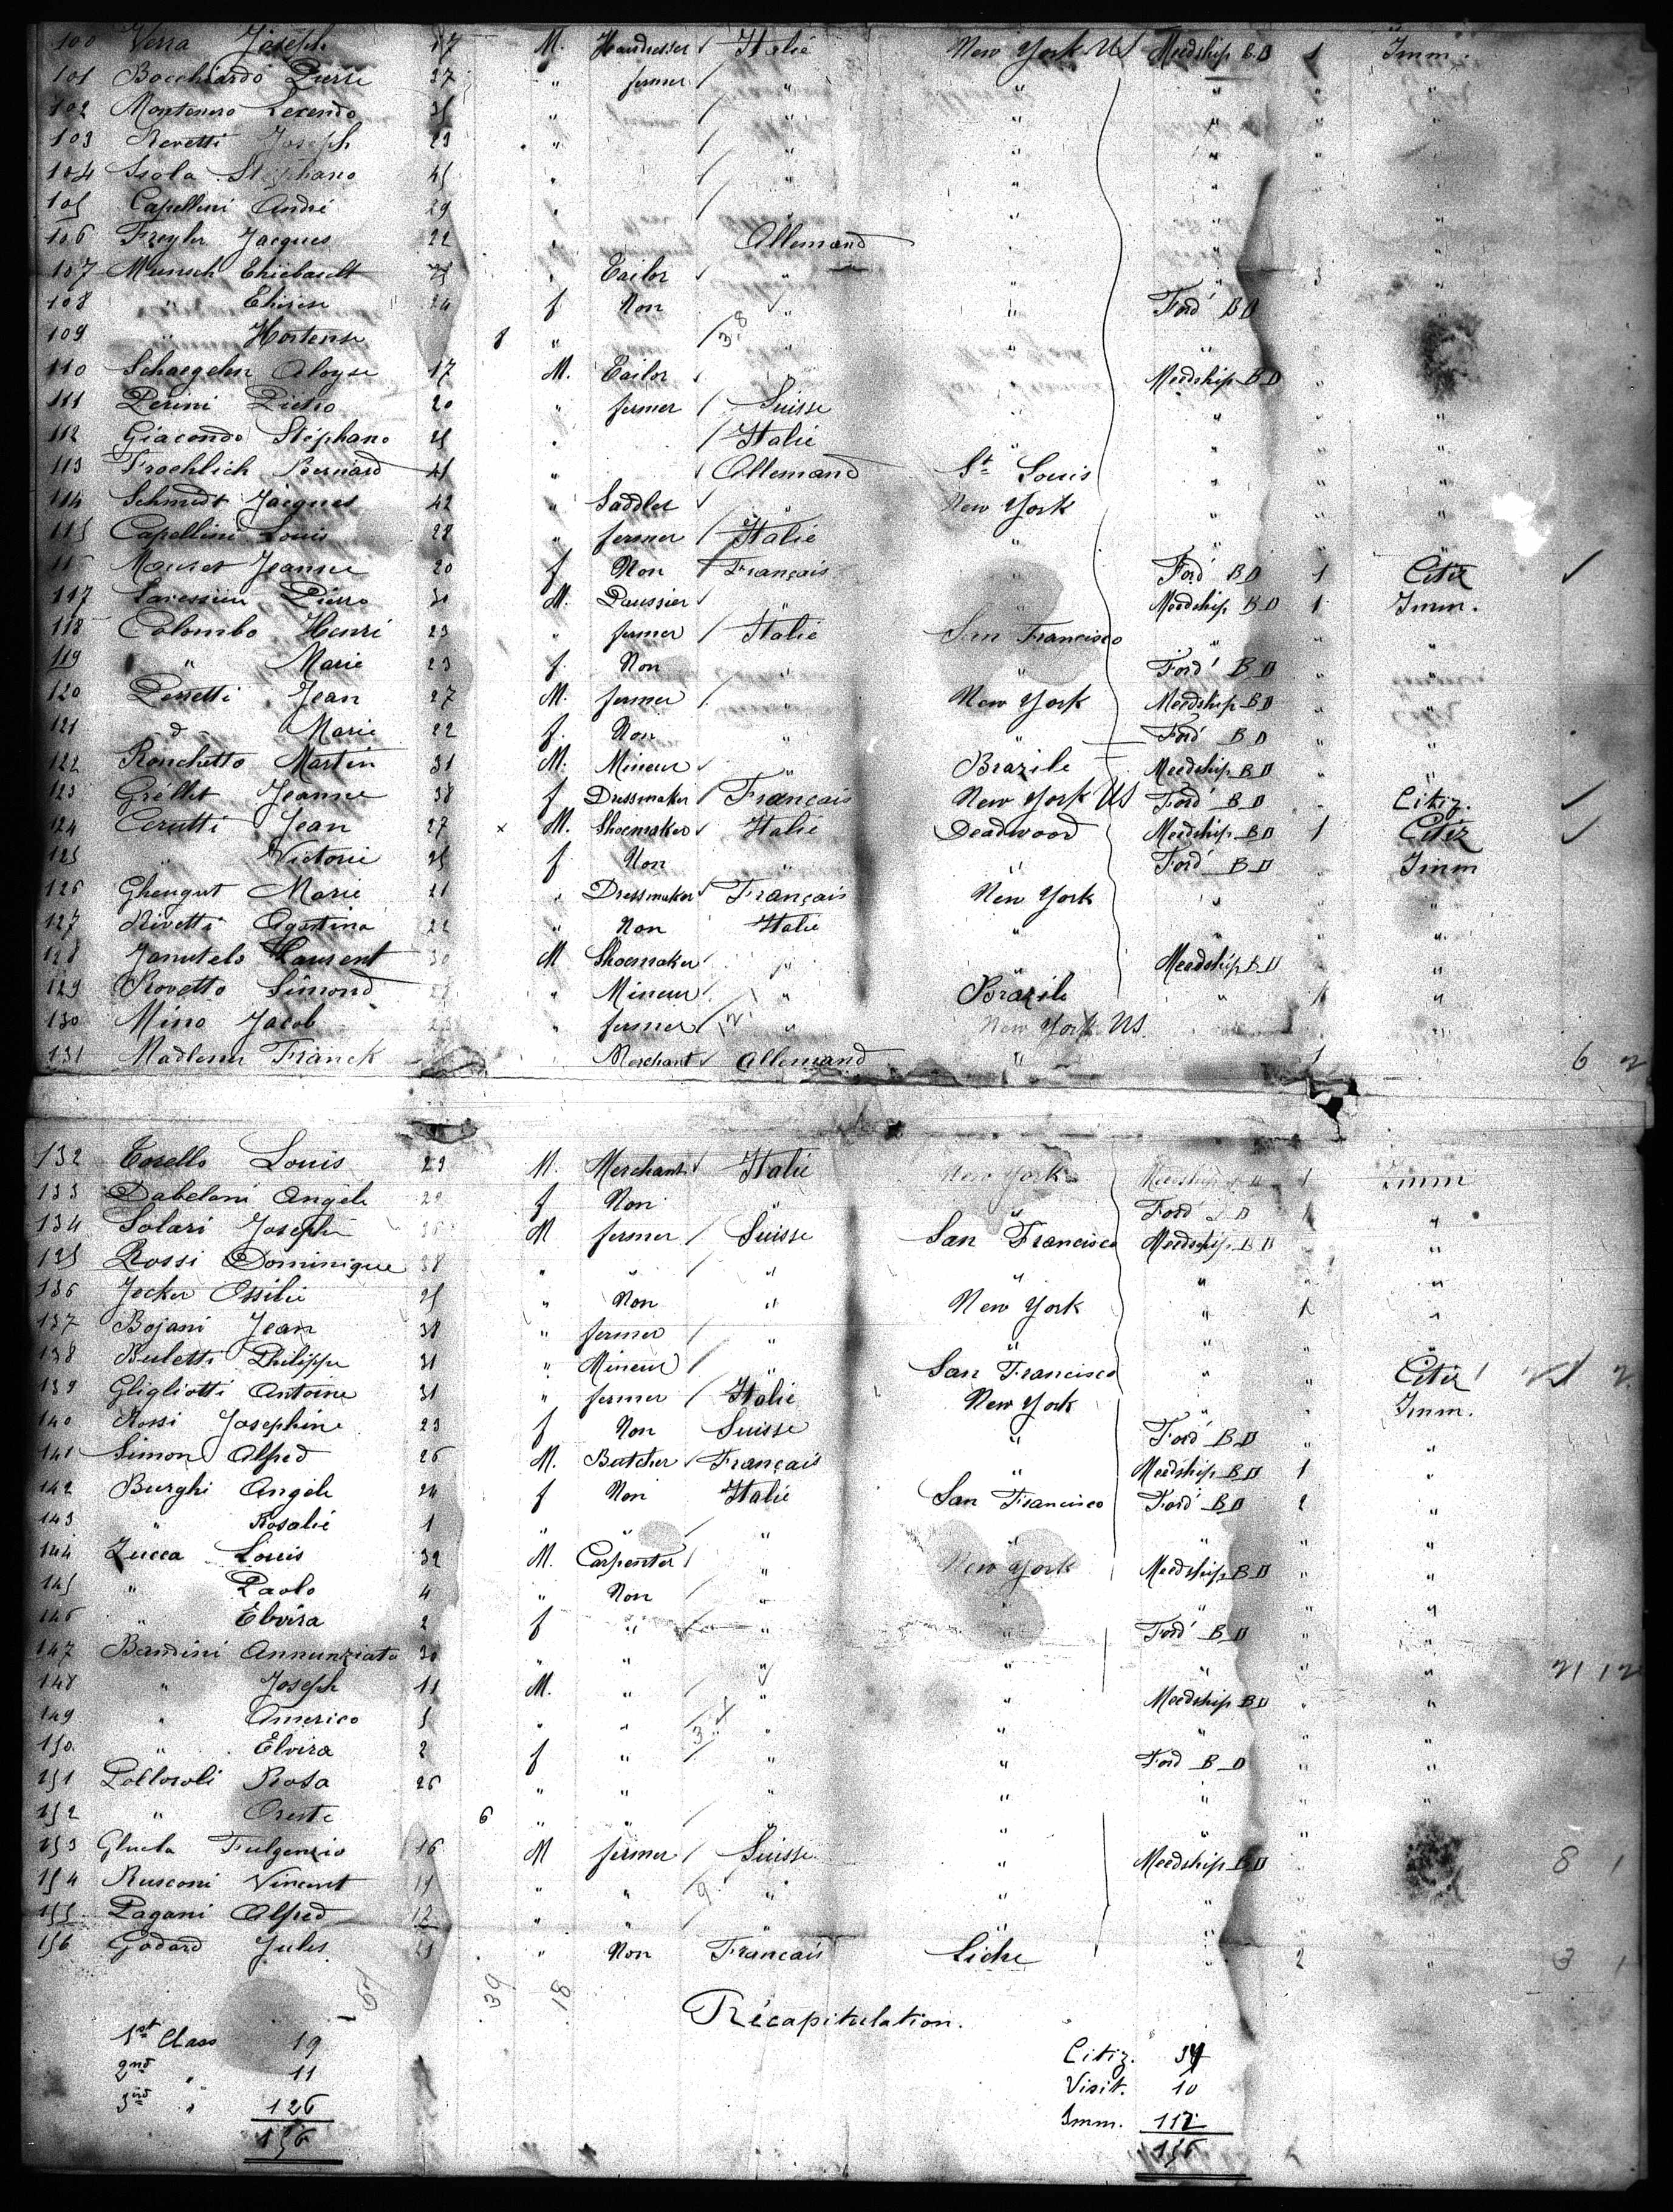 100 Verra Joseph 17 M. Hairdresser Italie New York US Meedship B.D 1 Imm.
101 Bocchiardo Pierre 37 " fermer " " " " "
102 Montenero 35 " " " " " "
103 Revetti Joseph 29 " " " " "
104 Isola Stephano 45 " " " " "
105 Capellini André 29 " " " " "
106 Freyler Jacques 22 " Allemand " " "
107 Munsch Thiebault " Tailor " " " "
108 " Thérèse 24 f Non " " Ford B D
109 " Hortense 8 " " " "
110 Schaegelen Aloyse 17 M. Tailor Meedship B D "
111 Perini Pietro 20 " fermer Suisse " "
112 Giacondo Stéphano 25 " Italie " " " "
113 Froehlich Bernard 45 " Allemand St Louis " " "
114 Schmidt Jacques 42 " Saddler " New York " " "
115 Capellini Louis 28 " fermer Italie " " " "
116 Mouret Jeanne 20 f Non Français Ford B D 1 Citiz
117 Pierre 30 M. " " Meedship B D 1 Imm.
118 Colombo Henri 23 " fermer Italie San Francisco " " "
119 " Marie 23 f. Non " " Ford B D " "
120 Perretti Jean 27 M. fermer " New York Meedship B D " "
121 d Marie 22 f. Non " " Ford B D " "
122 Ronchetto Martin 31 M. Mineur " Brazile Meedship B D " "
123 Gréllet Jeanne 38 f Dressmaker Français New York US Ford B D " Citiz.
124 Cerutti Jean 27 x M. Shoemaker Italie Deadwood Meedship B D 1 Citiz
125 " Victorie 25 f Non " " Ford B D " Imm
126 Ghengut Marie 21 " Dressmaker Français New York " " "
127 Rivetti Agostina 22 " Non Italie " " " "
128 Laurent 30 M Shoemaker " " Meedship B D "
129 Rovetto Simond " Mineur " Brazile " 1 "
130 Mino Jacob " fermer " New York US "
131 Madlener Franck Merchant Allemand " 1 6 2
132 Torello Louis 29 M. Merchant Italie New York Meedship B D 1 Imm
133 Dabeloni Angèle 22 f Non " " Ford B D 1 "
134 Solari Joseph 36 M fermer Suisse San Francisco Meedship B D " "
135 Rossi Dominique 38 " " " " " " "
136 Jecker Ossilie 25 " Non " New York " 1 "
137 Bojani Jean 38 " fermer " " " " "
138 Buletti Philippe 31 " Mineur " San Francisco " " Citiz
139 Gligliotti Antoine 31 " fermer Italie New York " " Imm.
140 Rossi Josephine 23 f Non Suisse " Ford B D " "
141 Simon Alfred 26 M. Butcher Français " Meedship B D 1 "
142 Burghi Angèle 24 f Non Italie San Francisco Ford B D 2 "
143 " Rosalie 1 " " " " " " "
144 Zucca Louis 32 M. Carpenter " New York Meedship B D " "
145 " Paolo 4 " Non " " " " "
146 " Elvira 2 f " " " Ford B D " "
147 Bandini Annunziata 30 " " " " " " " 21 12
148 " Joseph 11 M. " " " Meedship B D " "
149 " Americo 5 " " " " " " "
150 " Elvira 2 f " " " Ford B D " "
151 Rosa 26 " " " " " " "
152 " Oreste 6 " " " " " "
153 Fulgenzio 16 M fermer Suisse " Meedship B D " 8 1
154 Rusconi Vincent 19 " " " " " " "
155 Pagani Alfred 12 " " " " " " "
156 Godard Jules 21 " Non Français " 2 " 3 1
39 18
Récapitulation.
1st Class 19 Citiz. 34
2nd " 11 Visit. 10
3rd " 126 Imm. 112
156 156